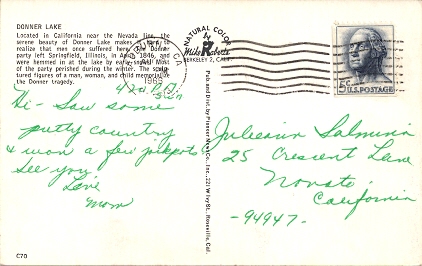 DONNER LAKE
Located in California near the Nevada line, the
serene beauty of Donner Lake makes it hard to
realize that men once suffered here. The Donner
party left Springfield, Illinois, in April 1846, and
were hemmed in at the lake by early snow. Most
of the party perished during the winter. The sculp-
tured figures of a man, woman, and child memorialize
the Donner tragedy.
Hi - Saw some
pretty country
& won a few jackpots
See you
Love
Mom
C70
Pub and Dist. by Pioneer News Co., Inc., 221 Wiley St., Roseville, Cal.
NATURAL COLOR
by
Mike Roberts
BERKELEY 2, CALIF.
CA
1965
5c
U.S. POSTAGE
Julieann Salmina
25 Crescent Lane
Novato
California
-94947.